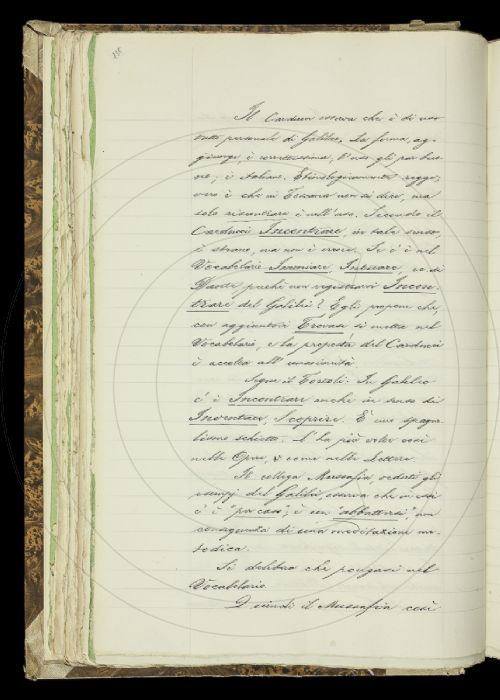 Il Carducci osserva che è di uso
tutto personale di Galileo. La forma, ag-
giunge, è correttissima, l'uso gli par buo-
no; è italiano. Etimologicamente regge;
vero è che in Toscana non si dice, ma
solo riscontrare è nell'uso. Secondo il
Carducci Incontrare, in tale senso,
è strano, ma non è errore. Se c'è nel
Vocabolario Immiare, Intuare, ec. di
Dante perchè non registrarvi Incon-
trare del Galilei? Egli propone che,
con aggiuntovi Trovare si metta nel
Vocabolario, e la proposta del Carducci
è accolta all'unanimità.
Segue il Tortoli: In Galileo
c'è Incontrare anche in senso di
Inventare, Scoprire. È uno spagno-
lismo schietto. L'ha più volte così
nelle Opere, come nelle Lettere.
Il collega Mussafia, veduti gli
esempi del Galilei, osserva che in essi
c'è "per caso"; è un "abbattersi", per
conseguenza di una meditazione me-
todica.
Si delibera che pongasi nel
Vocabolario.
Quindi il Mussafia così